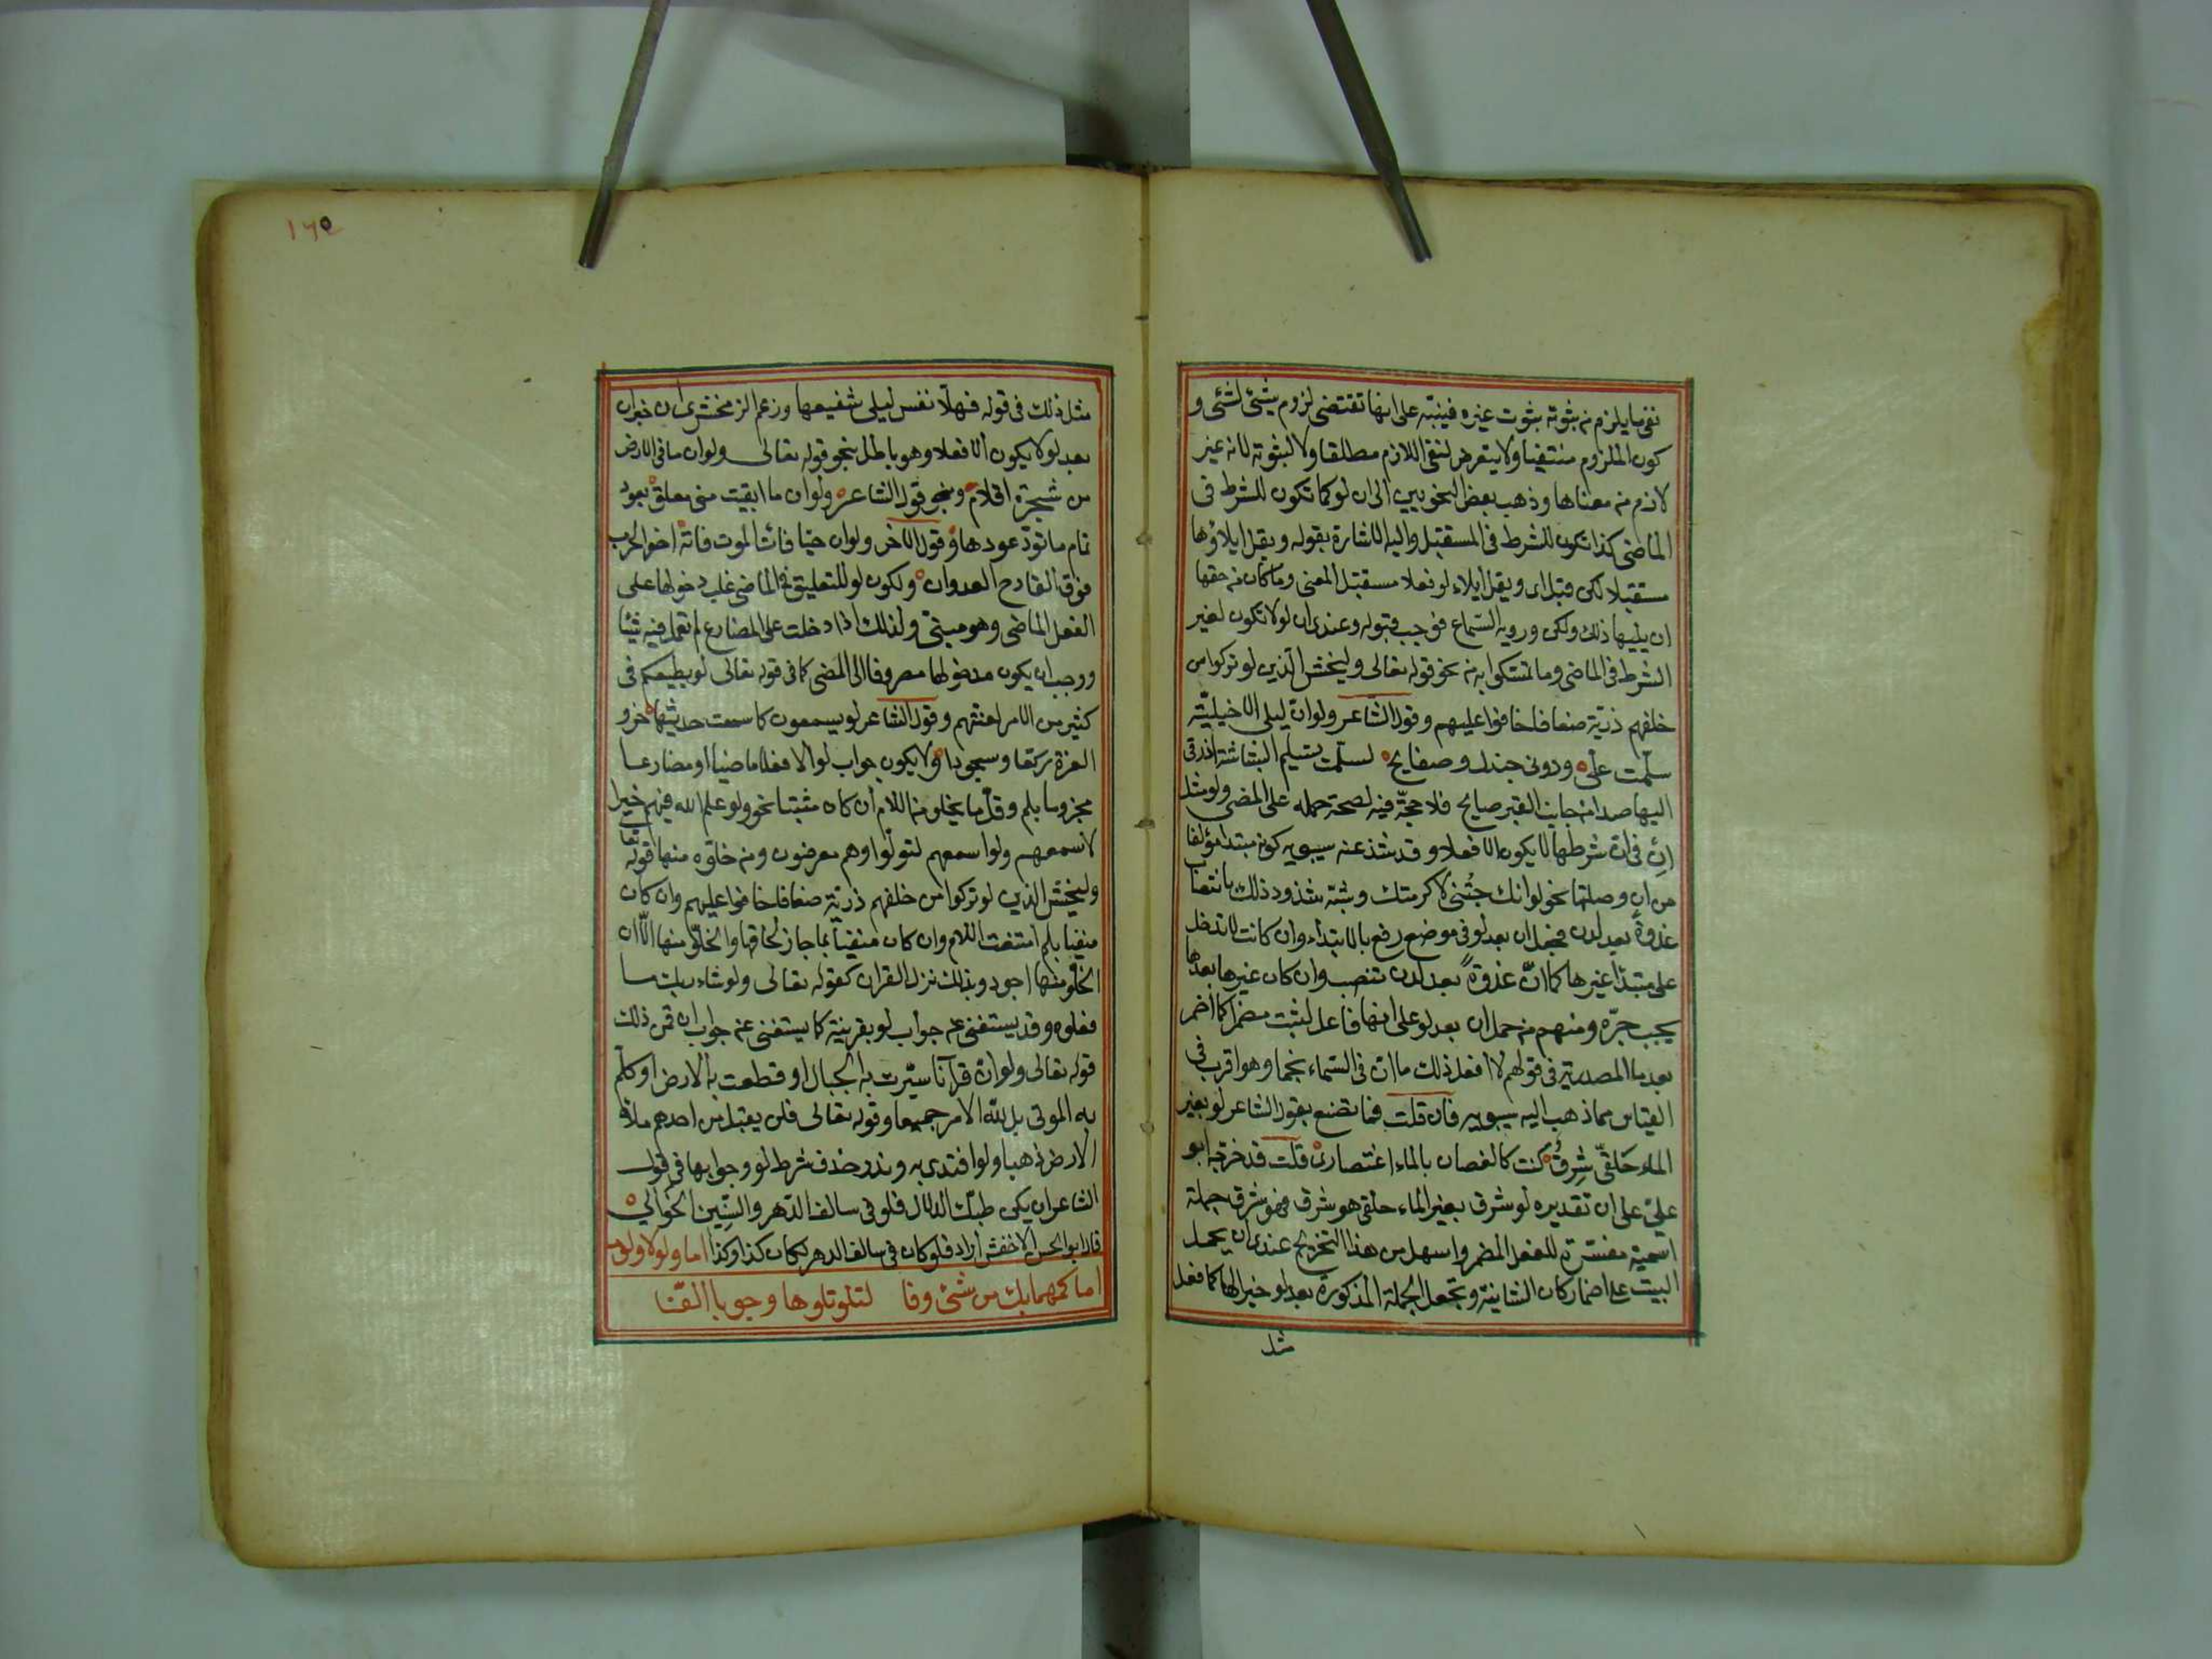 نفى ما يلزم من ثبوته ثبوت غيره فينبه على انها تقتضى لزوم شئ لشئ و
كون الملزوم منتفيا ولا يتعرض لنفى اللازم مطلقا ولا لثبوته لانه غير
لازم من معناها وذهب بعض النحويين الى ان لو كما تكون للشرط فى
الماضى كذا تكون للشرط فى المستقبل واليه الاشارة بقوله ويقل ايلاؤها
مستقبلا لكن قبل اى ويقل ايلاء لو فعلا مستقبل المعنى وما كان من حقها
ان يليها ذلك ولكن ورد به السماع فوجب قبوله وعندى ان لو لا تكون لغير
الشرط فى الماضى وما تمسكوا به من نحو قوله تعالى وليخش الذين لو تركوا من
خلفهم ذرية ضعافا خافوا عليهم وقول الشاعر ولو ان ليلى الاخيلية
سلمت على ودونى جندل وصفايح لسلمت تسليم البشاشة او زقى
اليها صدا من جانب القبر صايح فلا حجة فيه لصحة حمله على المضى ولو مثل
ان فى ان شرطها لا يكون الا فعلا وقد شذ عند سيبويه كونه مبتدا مؤلفا
من ان وصلتها نحو لو انك جئتنى لاكرمتك وشبه شذوذ ذلك بانتصاب
غدوة بعد لدن فجعل ان بعد لو فى موضع رفع بالابتداء وان كانت لا تدخل
على مبتدا غيرها كما ان غدوة بعد لدن تنصب وان كان غيرها بعدها
يجب جره ومنهم من حمل ان بعد لو على انها فاعل لثبت مضمرا كما اضمر
بعد ما المصدرية فى قولهم لا افعل ذلك ما ان فى السماء نجما وهو اقرب فى
القياس مما ذهب اليه سيبويه فان قلت فما تصنع بقول الشاعر لو بغير
الماء حلقى شرق كنت كالغصان بالماء اعتصارى قلت قد خرجه ابو
على على ان تقديره لو شرق بغير الماء حلقى هو شرق فهو شرق جملة
اسمية مفسرة للفعل المضمر واسهل من هذا التخريج عندى ان يحمل
البيت على اضمار كان الشانية وتجعل الجملة المذكورة بعد لو خبرا لها كما فعل
مثل
مثل ذلك فى قوله فهلا نفس ليلى شفيعها وزعم الزمخشرى ان خبر ان
بعد لو لا يكون الا فعلا وهو باطل بنحو قوله تعالى ولو ان ما فى الارض
من شجرة اقلام وبنحو قول الشاعر ولو ان ما ابقيت منى معلق بعود
ثمام ما تود عودها وقول الآخر ولو ان حيا فائت الموت فاته اخو الحرب
فوق القارح العدوان ولكون لو للتعليق فى الماضى غلب دخولها على
الفعل الماضى وهو مبنى ولذلك اذا دخلت على المضارع لم تعمل فيه شيئا
ووجب ان يكون مدخولها مصروفا الى المضى كما فى قوله تعالى لو يطيعكم فى
كثير من الامر لعنتم وقول الشاعر لو يسمعون كما سمعت حديثها خروا
لعزة ركعا وسجودا ولا يكون جواب لو الا فعلا ماضيا او مضارعا
مجزوما بلم وقل ما يخلو من اللام ان كان مثبتا نحو ولو علم الله فيهم خيرا
لاسمعهم ولو اسمعهم لتولوا وهم معرضون ومن خلوه منها قوله تعالى
وليخش الذين لو تركوا من خلفهم ذرية ضعافا خافوا عليهم وان كان
منفيا بلم امتنعت اللام وان كان منفيا بما جاز لحاقها والخلو منها الا ان
الخلو منها اجود وبذلك نزل القران كقوله تعالى ولو شاء ربك ما
فعلوه وقد يستغنى عن جواب لو بقرينة كما يستغنى عن جواب ان فمن ذلك
قوله تعالى ولو ان قرآنا سيرت به الجبال او قطعت به الارض او كلم
به الموتى بل لله الامر جميعا وقوله تعالى فلن يقبل من احدهم ملا
الارض ذهبا ولو افتدى به وندر حذف شرط لو وجوابها فى قول
الشاعر ان يكن طبك الدلال فلو فى سالف الدهر والسنين الخوالى
قال ابو الحسن الاخفش اراد فلو كان فى سالف الدهر لكان كذا وكذا اما ولولا ولوما
اما كمهما يك من شئ وفا لتلو تلوها وجوبا الفا